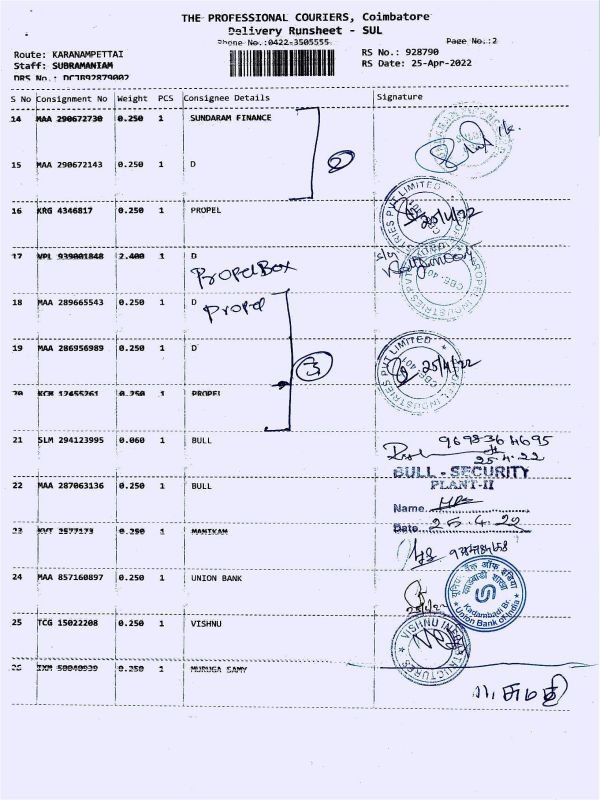 THE PROFESSIONAL COURIERS, Coimbatore
Delivery Runsheet - SUL
Phone No.:0422-3505555.
Page No.:2
Route: KARANAMPETTAI
RS No.: 928790
Staff: SUBRAMANIAM
RS Date: 25-Apr-2022
DRS No.: DCJB92879002
S No Consignment No Weight PCS Consignee Details Signature
14 MAA 290672730 0.250 1 SUNDARAM FINANCE
2
15 MAA 290672143 0.250 1 D
16 KRG 4346817 0.250 1 PROPEL
25/4/22
17 VPL 939001848 2.400 1 D
Propel Box
18 MAA 289665543 0.250 1 D
Propel
19 MAA 286956989 0.250 1 D
3
25/4/22
20 KCM 12455261 0.250 1 PROPEL
21 SLM 294123995 0.060 1 BULL
25.4.22
BULL - SECURITY
PLANT-II
22 MAA 287063136 0.250 1 BULL
Name
Date 25.4.22
23 KVT 3577173 0.250 1 MANIKAM
24 MAA 857160897 0.250 1 UNION BANK
यूनियन बैंक ऑफ इंडिया
Kadambadi Br.
Union Bank of India
25 TCG 15022208 0.250 1 VISHNU
26 IXM 50040939 0.250 1 MURUGA SAMY